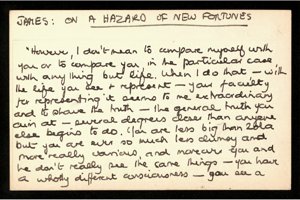 JAMES: ON A HAZARD OF NEW FORTUNES
"However, I don't mean to compare myself with
you or to compare you, in the particular case
with anything but life. When I do that – with
the life you see & represent – your faculty
for representing it seems to me extraordinary
and to shave the truth – the general truth you
aim at – several degrees closer than anyone
else begins to do. You are less big than Zola
but you are ever so much less clumsy and
more really various, and moreover you and
he don't really see the same things – you have
a wholly different consciousness – you see a